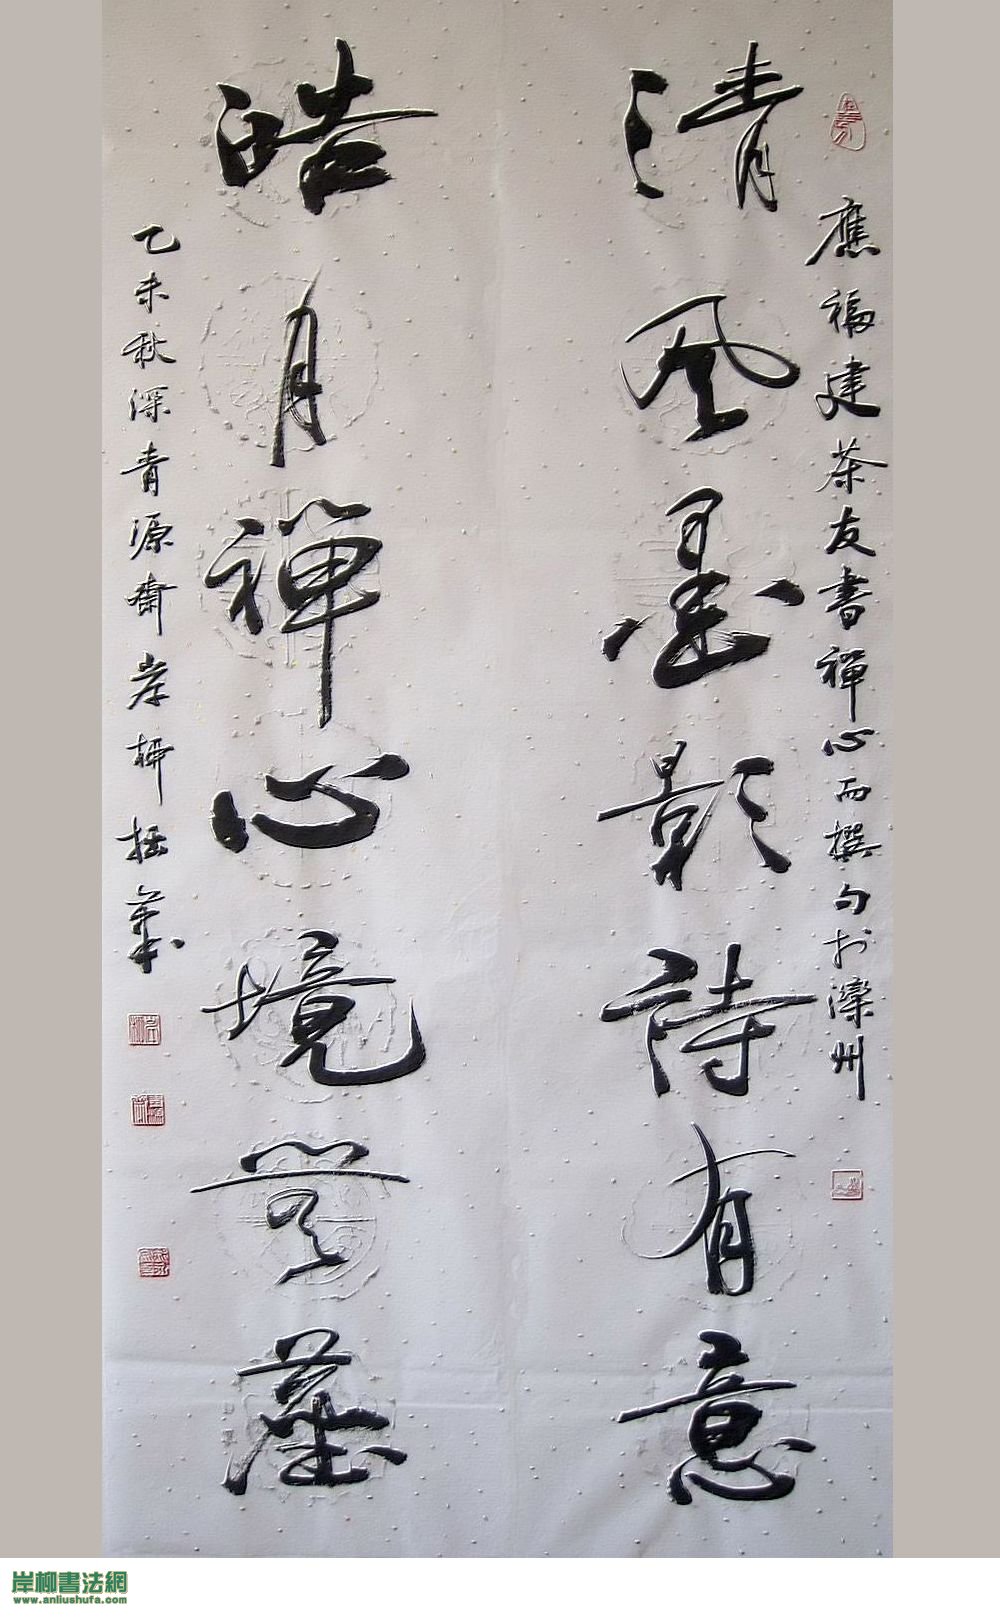 應福建茶友書禪心而撰句於灤州
清風墨影詩有意
皓月禪心境無塵
乙未秋深青源齋岸柳拙
岸柳書法網
www.anliushufa.com